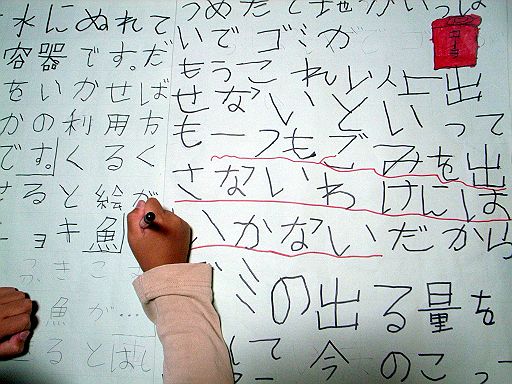 水にぬれて
容器です。だ
をいかせば
かの利用方
です。くるく
ると絵が
ョキ魚
ふきこ
魚が…
ると
いでゴミが
もうこれ以上出
せないといって
も一つもごみを出
さないわけには
いかないだから
ミの出る量を
て今のこっ